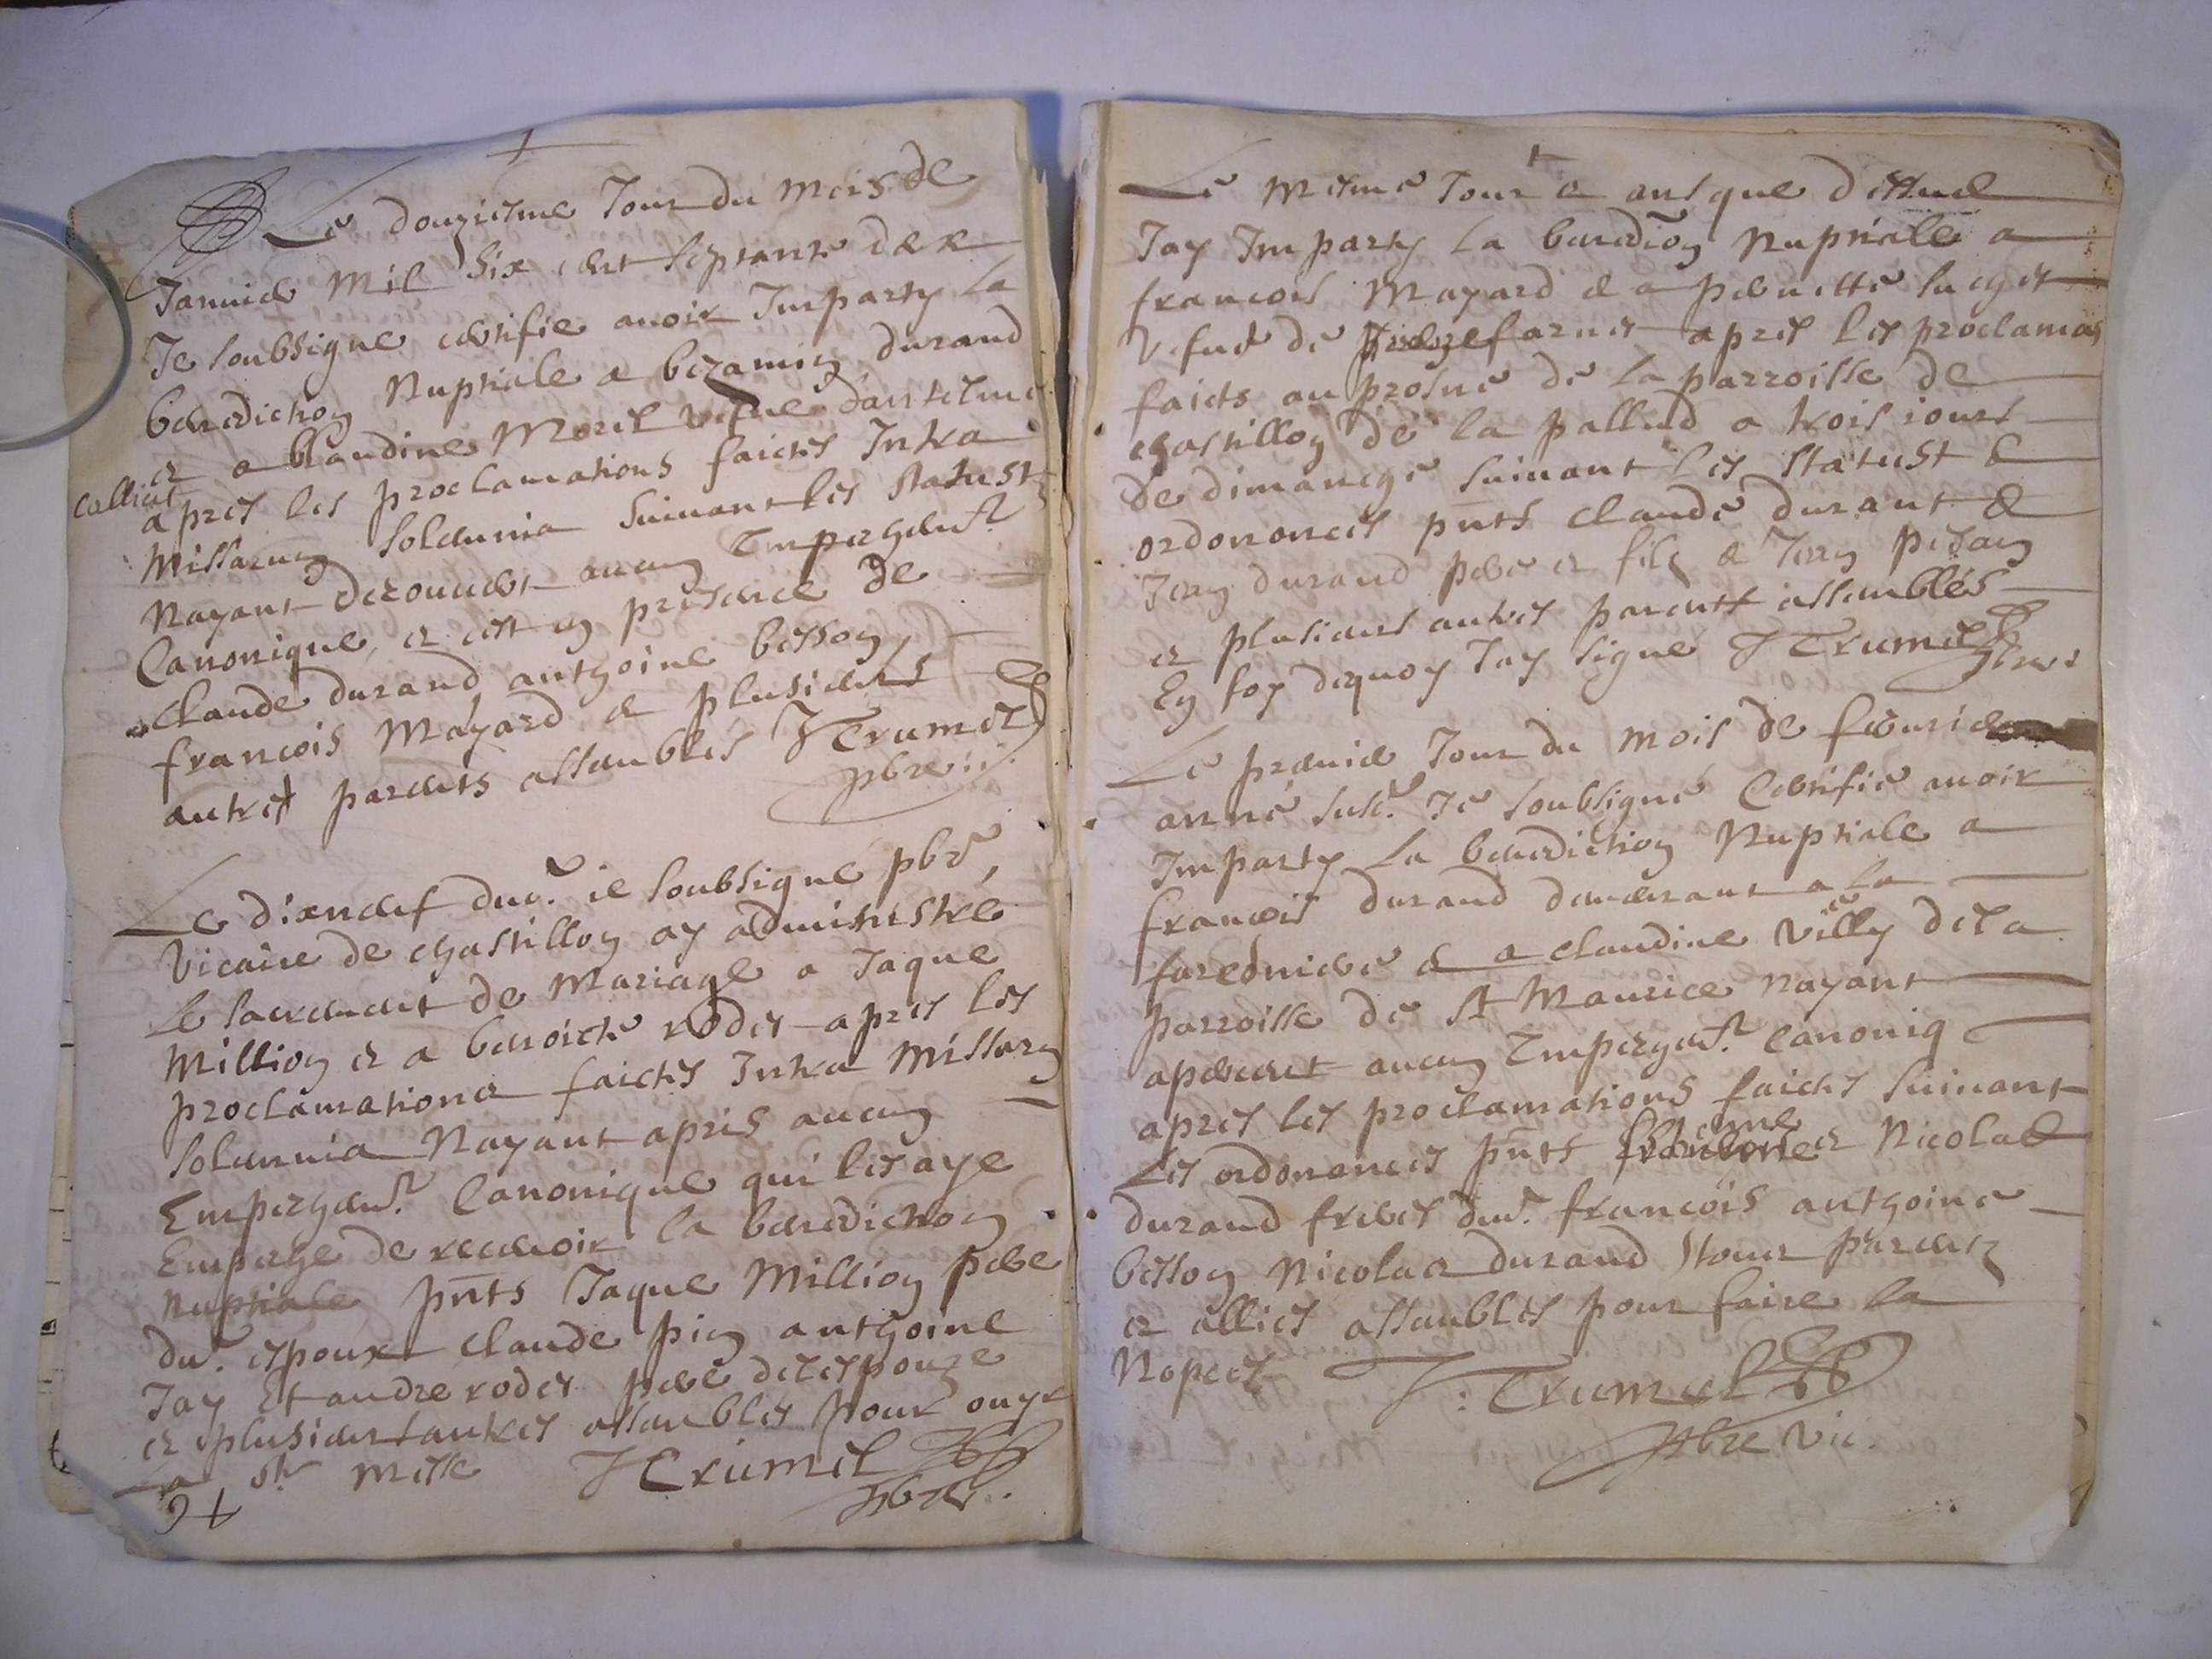 Le douziesme Jour du mois de
Januier mil six cent septante
Je soubsigne certifie auoir Imparty la
benediction Nuptiale a beniamin durand
et a Claudine Morel vefue dantelme
callies
apres les proclamations faictes Intra
Missarum solemnia suiuant les statust
Nayant decouuert aucun Empeschemt
Canonique et cest en presence de
Claude durand anthoine besson
francois Mayard & plusieurs
autres parents assembles J Trumel
pbre
Le dixneuf dud. ie soubsigne pbre
Vicaire de chastillon ay administré
le sacrement de Mariage a Jaque
Million et a benoicte rodet apres les
proclamations faictes Intra Missarum
solemnia Nayant apris aucun
Empeschemt Canonique qui les aye
Empeche de receuoir la benediction
Nuptiale pnts Jaque Million pere
dud. espoux Claude pin anthoine
Jay Et andre rodet pere de lespouze
et plusieurs autres assembles pour ouyr
La Ste Messe J Trumel
pbre
Le mesme Jour & an que dessus
Jay Imparty la benedion Nuptiale a
francois Mayard & a pernette
vefue de farnier apres les proclamaons
faicts au prosne de la parroisse de
chastillon de la pallud a trois iours
de dimanche suiuant les statust &
ordononces pnts Claude durant &
Jean durand pere et fils &
et plusieurs autres parents assemblés
En foy dequoy Jay signe J Trumel
pbre
Le premier Jour du mois de feburier
anné susd. Je soubsigné Certifie auoir
Imparty la benediction Nuptiale a
francois durand demeurant a la
& a claudine villy de la
parroisse de St Maurice nayant
apercut aucun Empeschemt Canoniq
apres les proclamations faictes suiuant
Les ordonences pnts et Nicolas
durand freres dud. francois anthoine
besson Nicolas durand tour parents
et allies assembles pour faire la
Nopces J: Trumel
pbre vic.